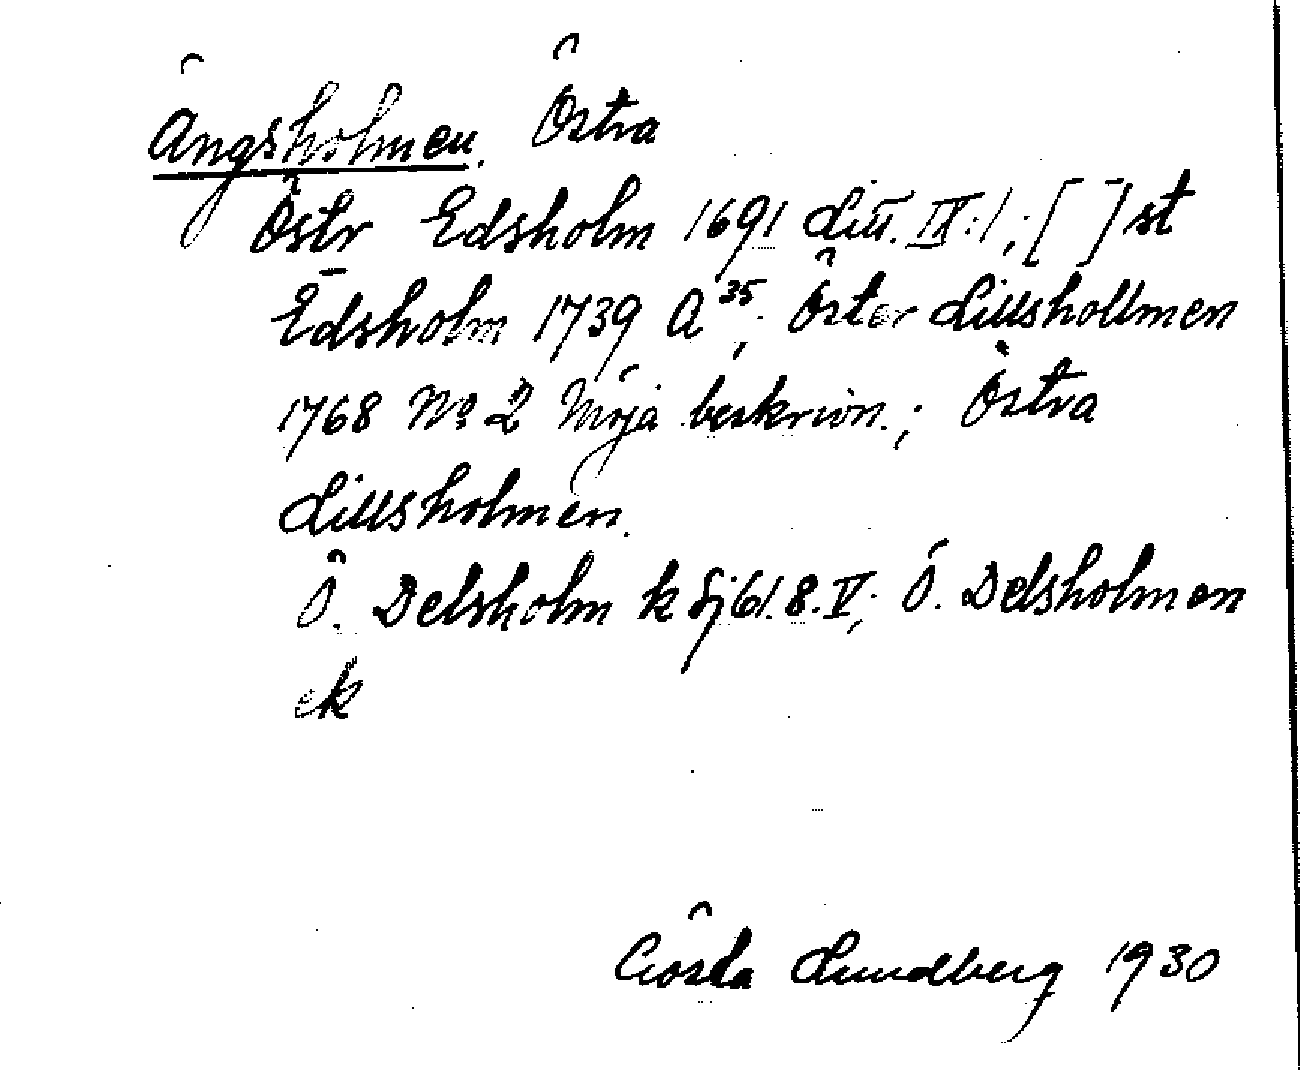 Ängsholmen. Östra
Östr Edsholm 1691 Litt. IX:1; [ ]st
Edsholm 1739 A 35; Öster Lillshollmen
1768 No 2 Möja beskrivn.; Östra
Lillsholmen.
Ö. Delsholm k Sj 61.8.V; Ö. Delsholmen
ek
Gösta Lundberg 1930